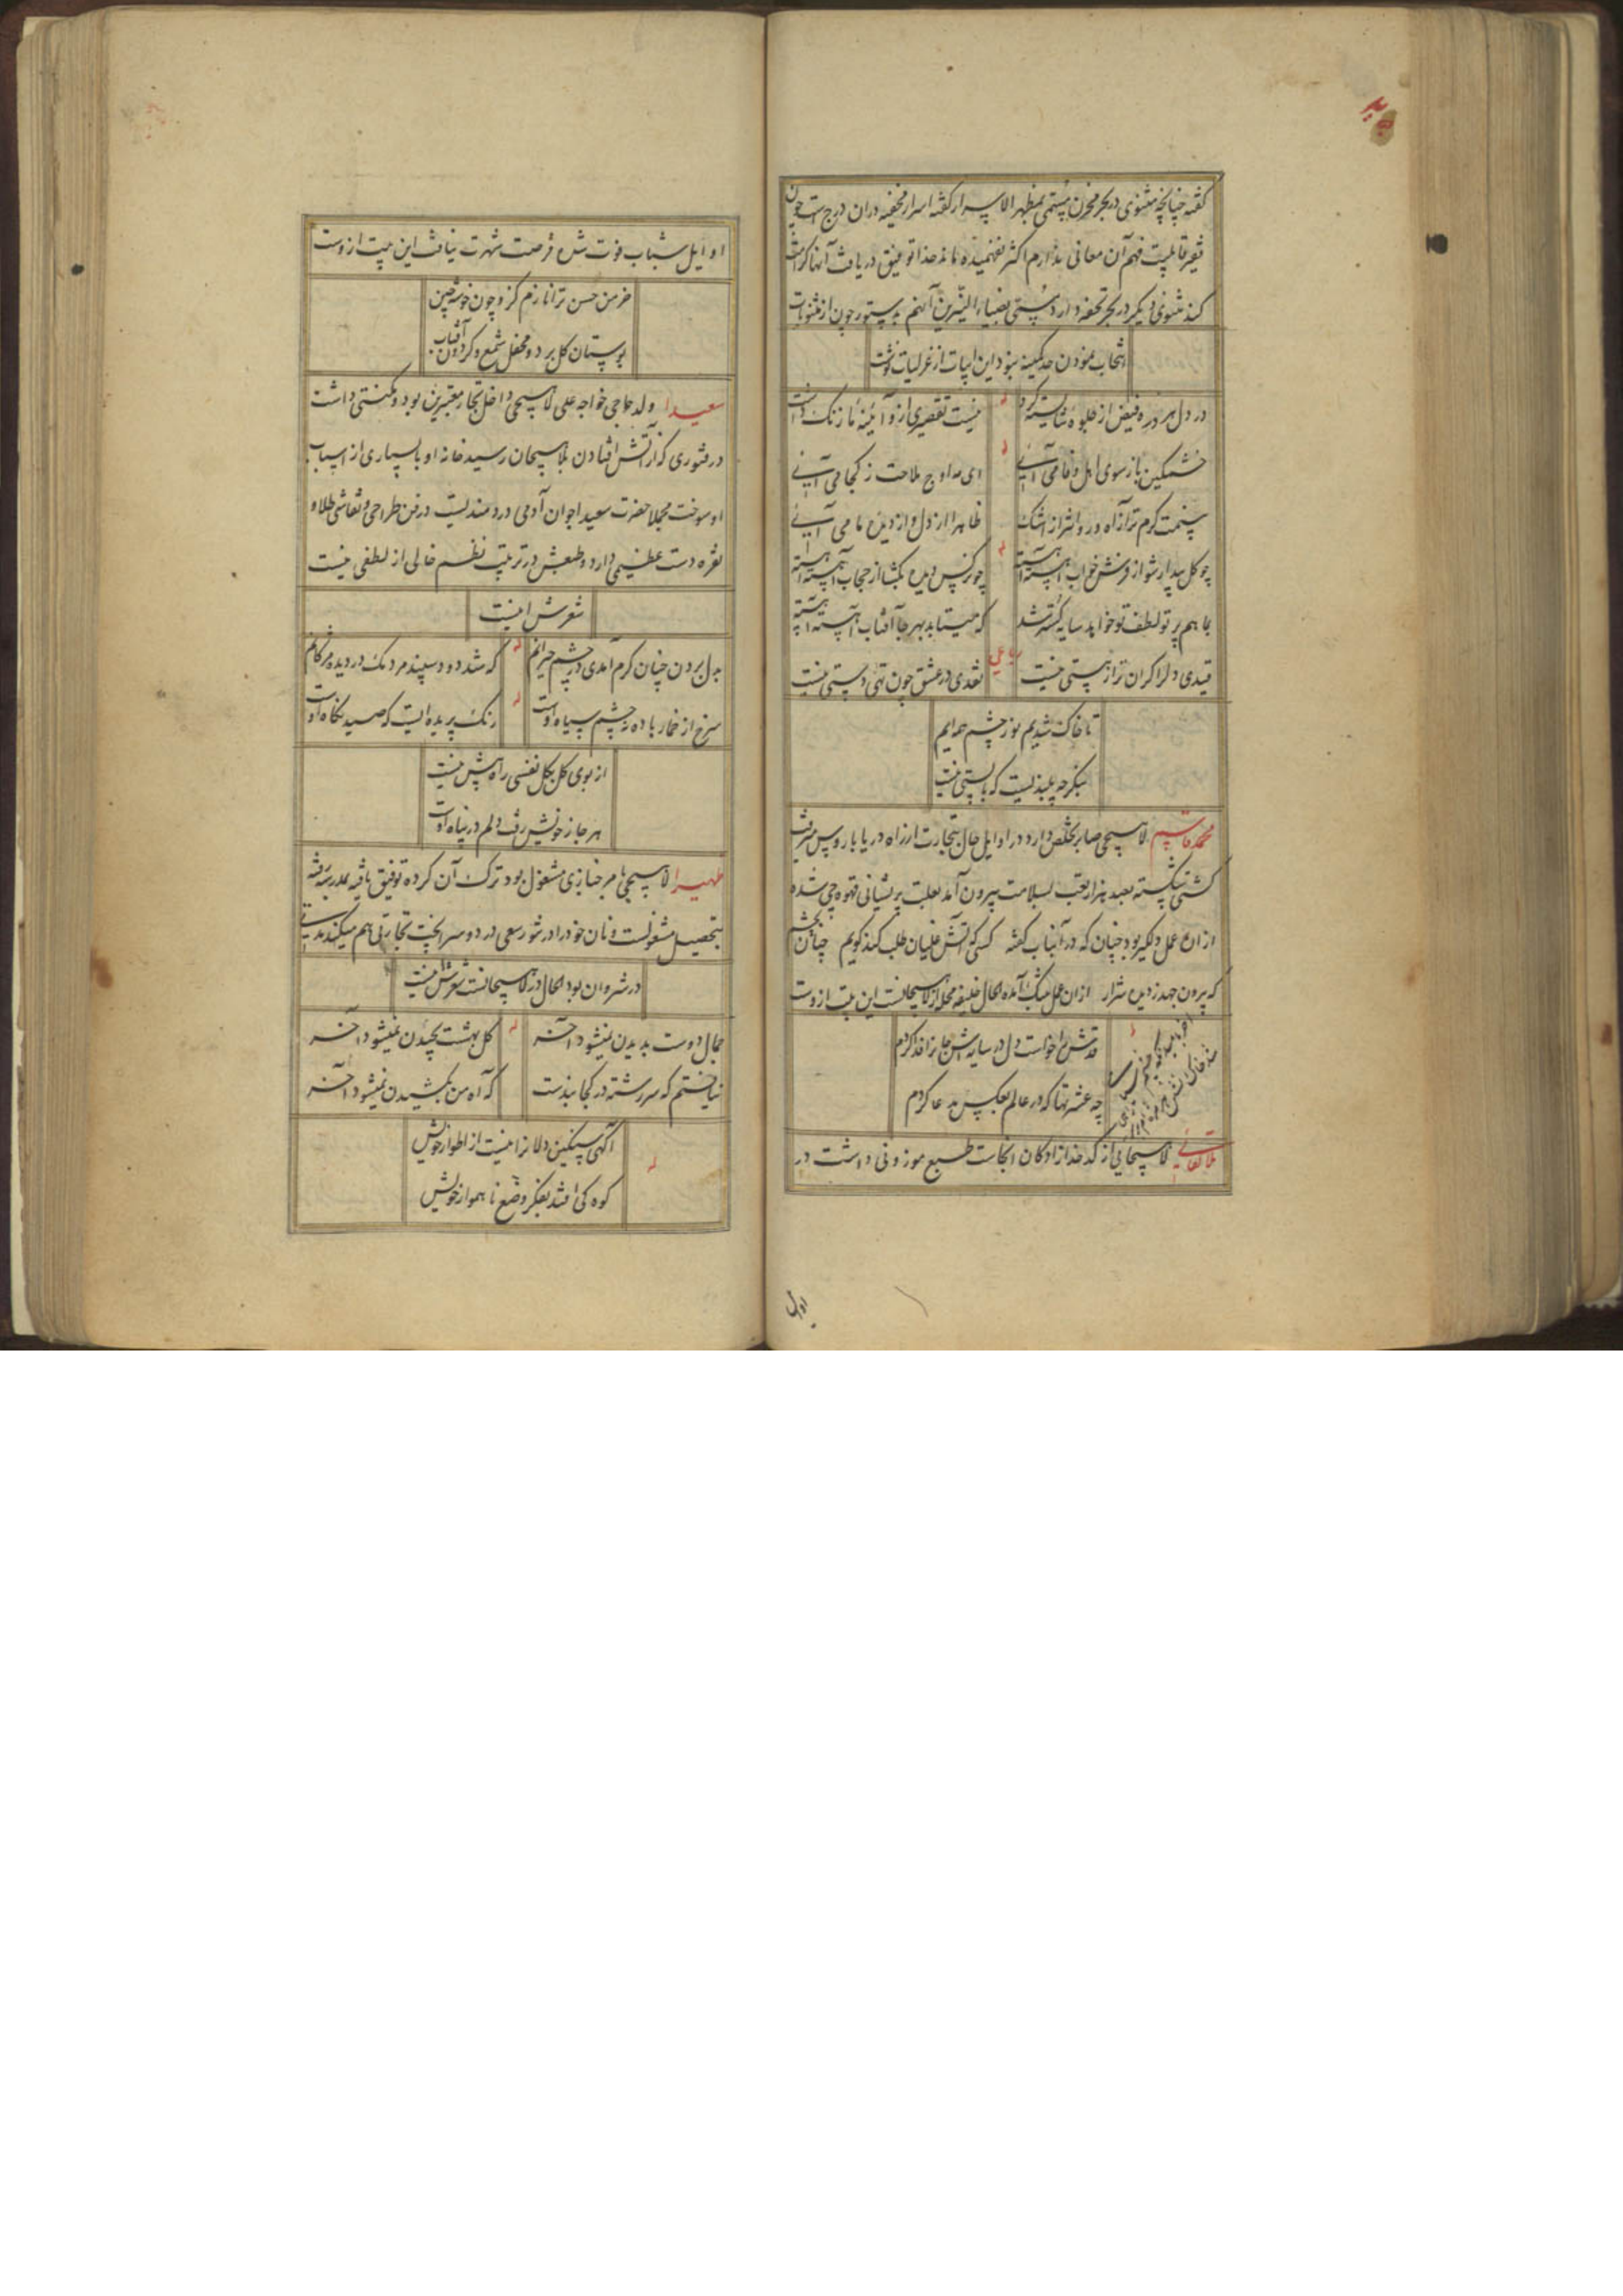 گفته چنانچه مثنوی در بحر مخزن مسمی بمظهر الاسرار گفته اسرار مخفیه دران درج است چون
فقیر قابلیت فهم آن معانی ندارم اکثر نفهمیده ماند خدا توفیق دریافت آنها کرامت
کند مثنوی دیگر در بحر تحفه دارد مسمی بضیاء النیرین آنهم بدستور چون از مثنویات
انتخاب نمودن حد کمینه نبود این ابیات از غزلیات نوشت
در دل هر ذره فیض از جلوهٔ شایسته کرد
نیست تقصیری ازو آئینهٔ ما زنگ داشت
خشمگین باز سوی اهل وفا می آیی
ای مه اوج ملاحت ز کجا می آیی
ظاهرا از دل و از دیدهٔ ما می آیی
چو گل بیدار شو از فرش خواب آهسته آهسته
چو نرگس دیده بگشا از حجاب آهسته آهسته
بما هم پرتو لطف تو خواهد سایه گستر شد
که میتابد بهر جا آفتاب آهسته آهسته
رباعی
قیدی دل را گران تر از هستی نیست
نقدی در عشق چون تهی دستی نیست
تا خاک شدیم نور چشم همه ایم
بنگر چه بلندیست که با پستی نیست
محمد قاسم لاهیجی صابر تخلص دارد در اوایل حال بتجارت از راه دریا باروس میرفت
کشتی شکسته بعد هزار تعب بسلامت بیرون آمد بعلت پریشانی قهوه چی شده
ازان عمل دلگیر بود چنان که در آنباب گفته کسی که آتش غلیان طلب کند گویم چنان بچشم
که بیرون جهد ز دیده شرار ازان عمل بتنگ آمده الحال خلیفه محله از لاهیجانست این بیت ازوست
قدش میخواست دل در سایه اش جا نرا فدا کردم
چه عشرتها که در عالم بعکس مدعا کردم
ملا لقائی لاهیجانی از کدخدازادگان آنجاست طبع موزونی داشت در
اوایل
اوایل شباب فوت شده فرصت شهرت نیافت این بیت ازوست
خرمن حسن ترا نازم کزو چون خوشه چین
بوستان گل برد و محفل شمع و گردون آفتاب
سعیدا ولد حاجی خواجه علی لاهیجی داخل تجار معتبرین بود و مکنتی داشت
در فتوری که از آتش افتادن بلاهیجان رسید خانه او با بسیاری از اسباب
او سوخت مجملا حضرت سعیدا جوان آدمی دردمندیست در فن طراحی و نقاشی طلا و
نقره دست عظیمی دارد و طبعش در ترتیب نظم خالی از لطفی نیست
شعرش اینست
بدل بردن چنان گرم آمدی در چشم حیرانم
که شد دود سپند مردمک در دیده مژگانم
سرخ از خمار باده نه چشم سیاه اوست
رنگ پریده ایست که صید نگاه اوست
از بوی گل بگل نفسی راه بیش نیست
هر جا ز خویش رفت دلم در پناه اوست
ظهیرا لاهیجی بامر خبازی مشغول بود ترک آن کرده توفیق یافته بمدرسه رفته
بتحصیل مشغولست و نان خود را در شور سعی در دو سرا پخت تجارتی هم میکند مدتی
در شروان بود الحال در لاهیجانست شعرش اینست
جمال دوست بدیدن نمیشود آخر
گل بهشت بچیدن نمیشود آخر
نیافتم که سررشته در کجا بندست
که آه من بکشیدن نمیشود آخر
آگهی سنگین دلانرا نیست از اطوار خویش
کوه کی افتد بفکر وضع ناهموار خویش